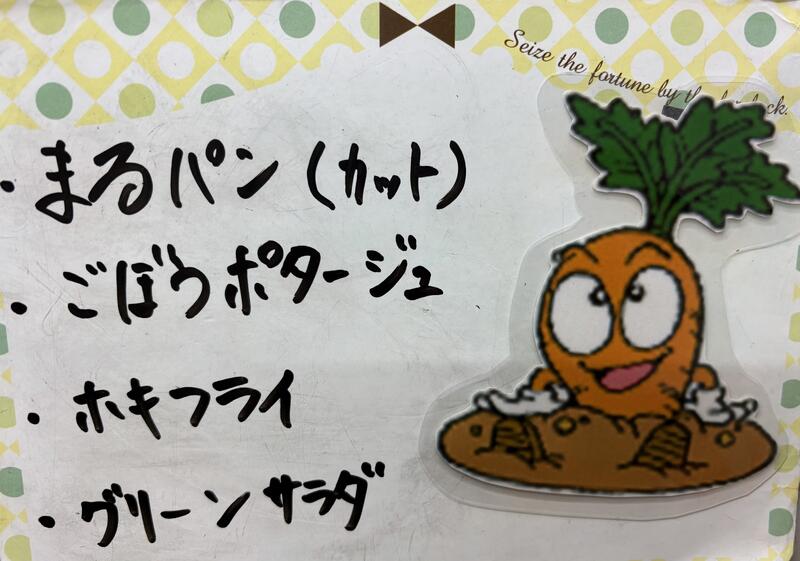 Seize the fortune by
・まるパン（カット）
・ごぼうポタージュ
・ホキフライ
・グリーンサラダ